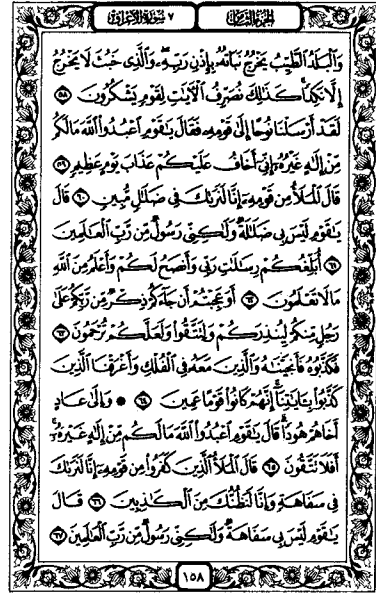 الجزء الثامن
٧ سورة الأعراف
وَٱلْبَلَدُ ٱلطَّيِّبُ يَخْرُجُ نَبَاتُهُۥ بِإِذْنِ رَبِّهِۦ وَٱلَّذِى خَبُثَ لَا يَخْرُجُ
إِلَّا نَكِدًا كَذَٰلِكَ نُصَرِّفُ ٱلْآيَٰتِ لِقَوْمٍ يَشْكُرُونَ ٥٨
لَقَدْ أَرْسَلْنَا نُوحًا إِلَىٰ قَوْمِهِۦ فَقَالَ يَٰقَوْمِ ٱعْبُدُوا۟ ٱللَّهَ مَا لَكُم
مِّنْ إِلَٰهٍ غَيْرُهُۥٓ إِنِّىٓ أَخَافُ عَلَيْكُمْ عَذَابَ يَوْمٍ عَظِيمٍ ٥٩
قَالَ ٱلْمَلَأُ مِن قَوْمِهِۦٓ إِنَّا لَنَرَىٰكَ فِى ضَلَٰلٍ مُّبِينٍ ٦٠ قَالَ
يَٰقَوْمِ لَيْسَ بِى ضَلَٰلَةٌ وَلَٰكِنِّى رَسُولٌ مِّن رَّبِّ ٱلْعَٰلَمِينَ
٦١ أُبَلِّغُكُمْ رِسَٰلَٰتِ رَبِّى وَأَنصَحُ لَكُمْ وَأَعْلَمُ مِنَ ٱللَّهِ
مَا لَا تَعْلَمُونَ ٦٢ أَوَعَجِبْتُمْ أَن جَآءَكُمْ ذِكْرٌ مِّن رَّبِّكُمْ عَلَىٰ
رَجُلٍ مِّنكُمْ لِيُنذِرَكُمْ وَلِتَتَّقُوا۟ وَلَعَلَّكُمْ تُرْحَمُونَ ٦٣
فَكَذَّبُوهُ فَأَنجَيْنَٰهُ وَٱلَّذِينَ مَعَهُۥ فِى ٱلْفُلْكِ وَأَغْرَقْنَا ٱلَّذِينَ
كَذَّبُوا۟ بِـَٔايَٰتِنَآ إِنَّهُمْ كَانُوا۟ قَوْمًا عَمِينَ ٦٤ ۞ وَإِلَىٰ عَادٍ
أَخَاهُمْ هُودًا قَالَ يَٰقَوْمِ ٱعْبُدُوا۟ ٱللَّهَ مَا لَكُم مِّنْ إِلَٰهٍ غَيْرُهُۥٓ
أَفَلَا تَتَّقُونَ ٦٥ قَالَ ٱلْمَلَأُ ٱلَّذِينَ كَفَرُوا۟ مِن قَوْمِهِۦٓ إِنَّا لَنَرَىٰكَ
فِى سَفَاهَةٍ وَإِنَّا لَنَظُنُّكَ مِنَ ٱلْكَٰذِبِينَ ٦٦ قَالَ
يَٰقَوْمِ لَيْسَ بِى سَفَاهَةٌ وَلَٰكِنِّى رَسُولٌ مِّن رَّبِّ ٱلْعَٰلَمِينَ ٦٧
١٥٨